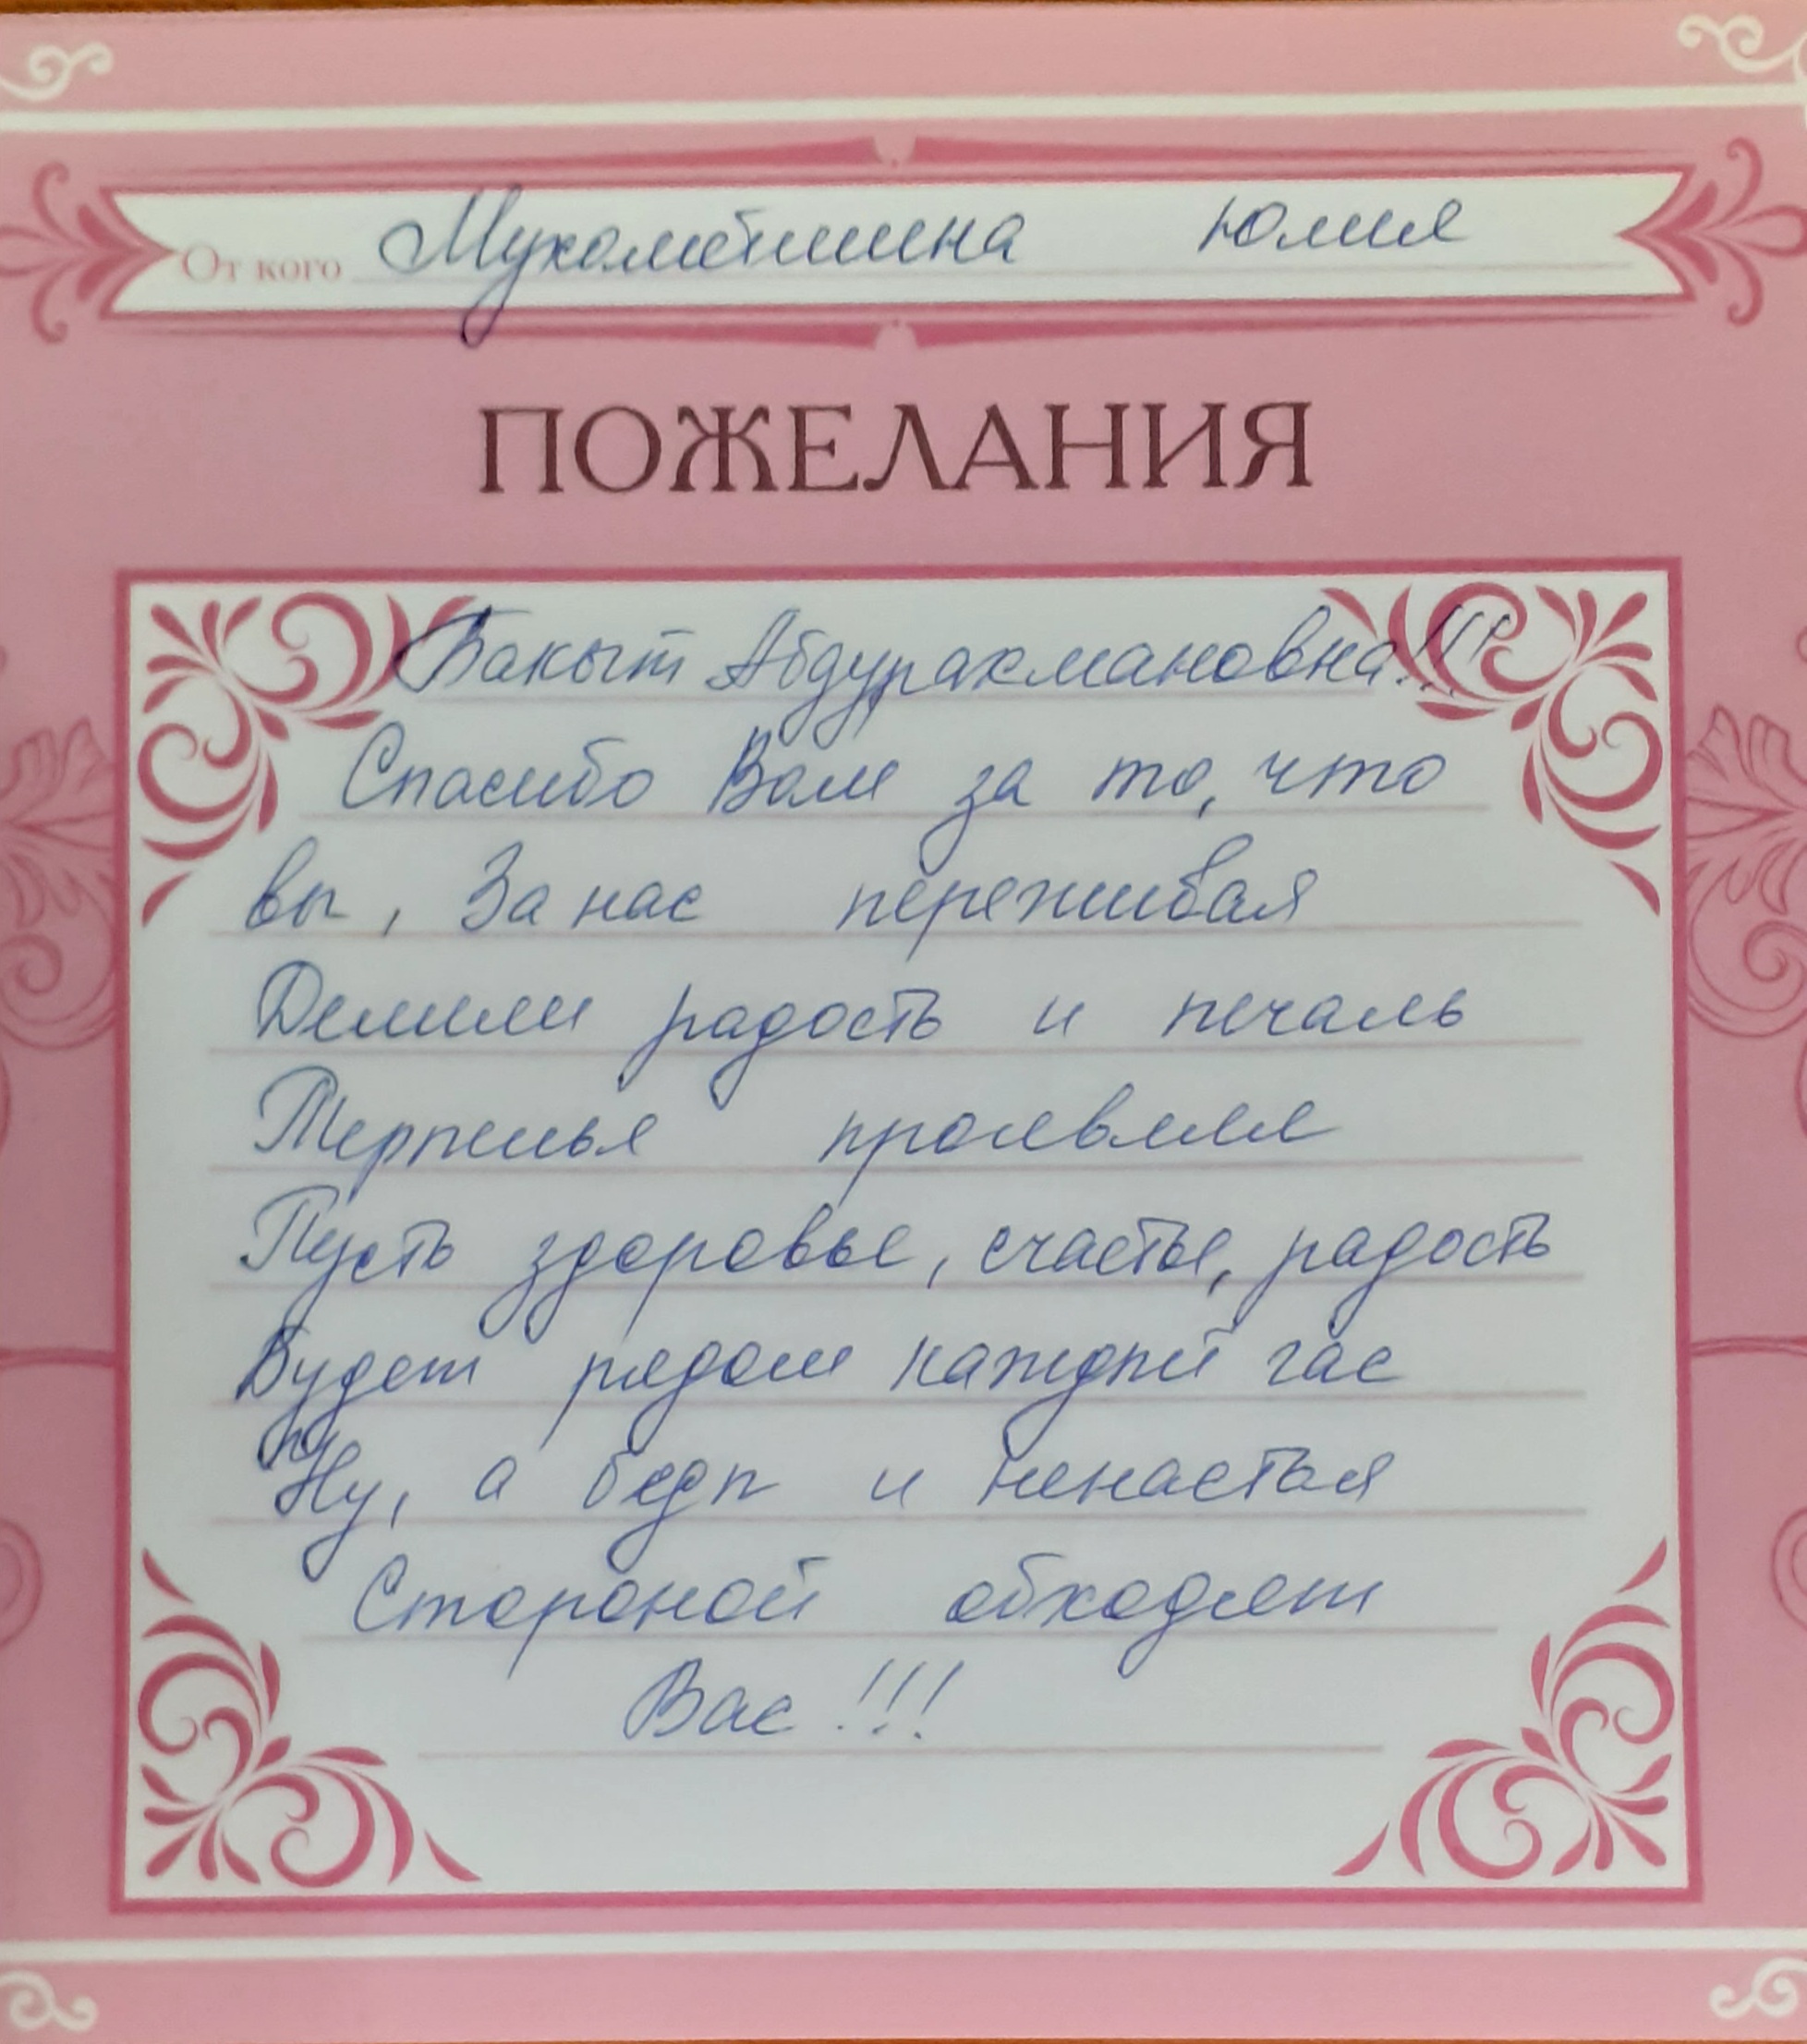 От кого Мухаметшина Юлия
ПОЖЕЛАНИЯ
Бакыт Абдурахмановна!!!
Спасибо Вам за то, что
вы, За нас переживая
Делили радость и печаль
Терпенья проявляя
Пусть здоровье, счастье, радость
Будет рядом каждый час
Ну, а беды и ненастья
Стороной обходят
Вас!!!